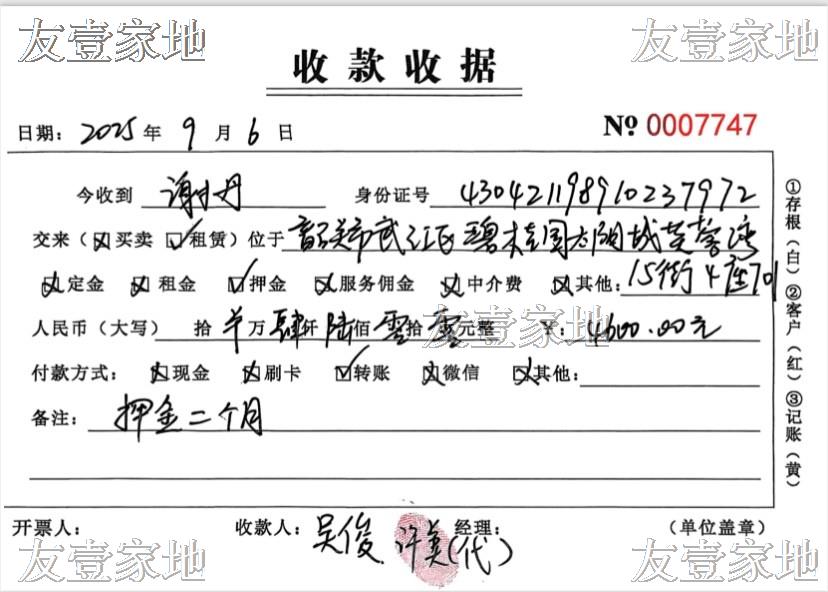 友壹家地 友壹家地
收款收据
日期: 2025 年 9 月 6 日 № 0007747
今收到 谢丹 身份证号 430421198910237972
交来(☒买卖 ☑租赁)位于 韶关市武江区碧桂园太阳城芷馨湾
☒定金 ☒租金 ☑押金 ☒服务佣金 ☒中介费 ☒其他: 15街4座701
人民币(大写) 拾 万 肆仟 陆佰 零拾 零元整 ¥: 4600.00元
友壹家地
付款方式: ☒现金 ☒刷卡 ☑转账 ☒微信 ☒其他:
备注: 押金二个月
开票人: 收款人: 吴俊 许美(代) 经理: (单位盖章)
友壹家地 友壹家地
①存根(白)②客户(红)③记账(黄)